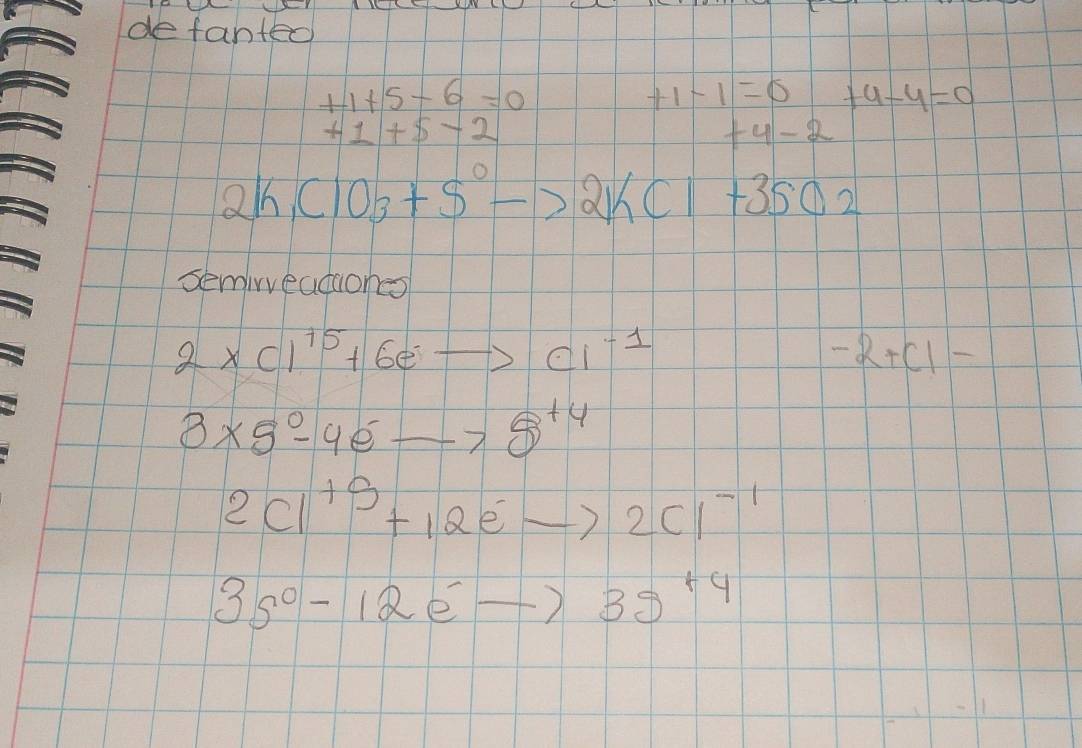 de tanteo
+1+5-6=0 +1-1=0 +4-4=0
+1+5-2 +4-2
2KClO3 + S⁰ -> 2KCl + 3SO2
semirreacciones
2 x Cl⁺⁵ + 6e⁻ -> Cl⁻¹ -2+Cl-
3 x S⁰ - 4e⁻ -> S⁺⁴
2Cl⁺⁵ + 12e⁻ -> 2Cl⁻¹
3S⁰ - 12e⁻ -> 3S⁺⁴